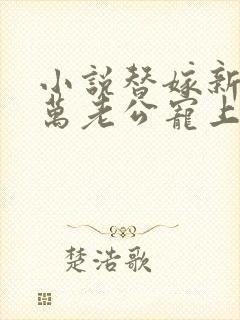 小說替嫁新
萬老公寵上
楚浩歌